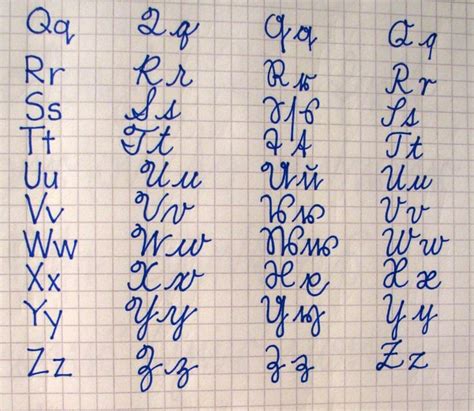 Qq Qq Qq Qq
Rr Rr Rr Rr
Ss Ss Ss Ss
Tt Tt Tt Tt
Uu Uu Uu Uu
Vv Vv Vv Vv
Ww Ww Ww Ww
Xx Xx Xx Xx
Yy Yy Yy Yy
Zz Zz Zz Zz